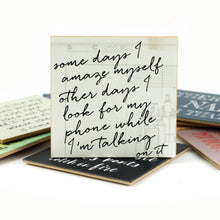 some days I
amaze myself
other days I
look for my
phone while
I'm talking
on it